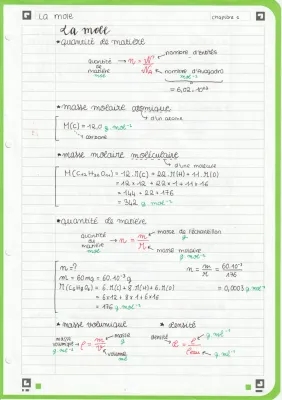 La mole
chapitre 2
La mole
* quantité de matière
quantité de matière mol → n = N/NA
nombre d'entités
nombre d'Avogadro mol⁻¹
= 6,02.10²³
* masse molaire atomique
d'un atome
M(C) = 12,0 g.mol⁻¹
carbone
* masse molaire moléculaire
d'une molécule
M(C₁₂H₂₂O₁₁) = 12.M(C) + 22.M(H) + 11.M(O)
= 12 x 12 + 22 x 1 + 11 x 16
= 144 + 22 + 176
= 342 g.mol⁻¹
* quantité de matière
quantité de matière mol → n = m/M
masse de l'échantillon g
masse molaire g.mol⁻¹
n = ?
m = 60 mg = 60.10⁻³ g
M(C₆H₈O₆) = 6.M(C) + 8.M(H) + 6.M(O)
= 6 x 12 + 8 x 1 + 6 x 16
= 176 g.mol⁻¹
n = m/M = 60.10⁻³/176
= 0,0003 g.mol⁻¹
* masse volumique
masse volumique ρ = m/V
masse g
volume
* densité
densité d = ρ/ρeau